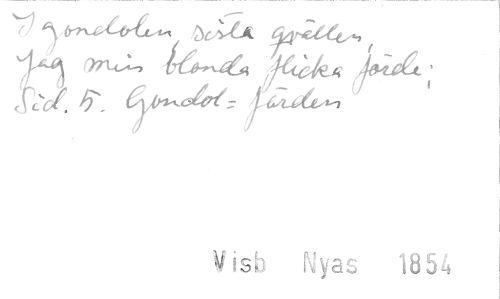 I gondolen, sista qvällen,
Jag min blonda flicka förde;
Sid. 5. Gondol=färden
Visb Nyas 1854